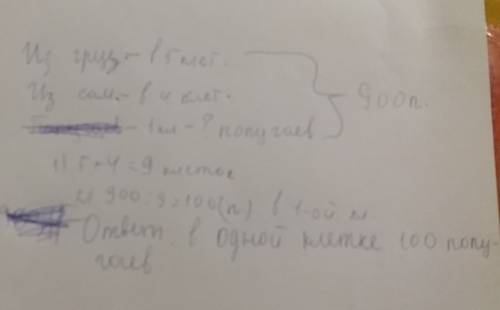 Из груз. - в 5 клет.
Из сам. - в 4 клет.
900п.
- 1 кл - ? попугаев
1) 5+4=9 клеток
2) 900:9=100(п) в 1-ой к.
Ответ: в одной клетке 100 попу-
гаев